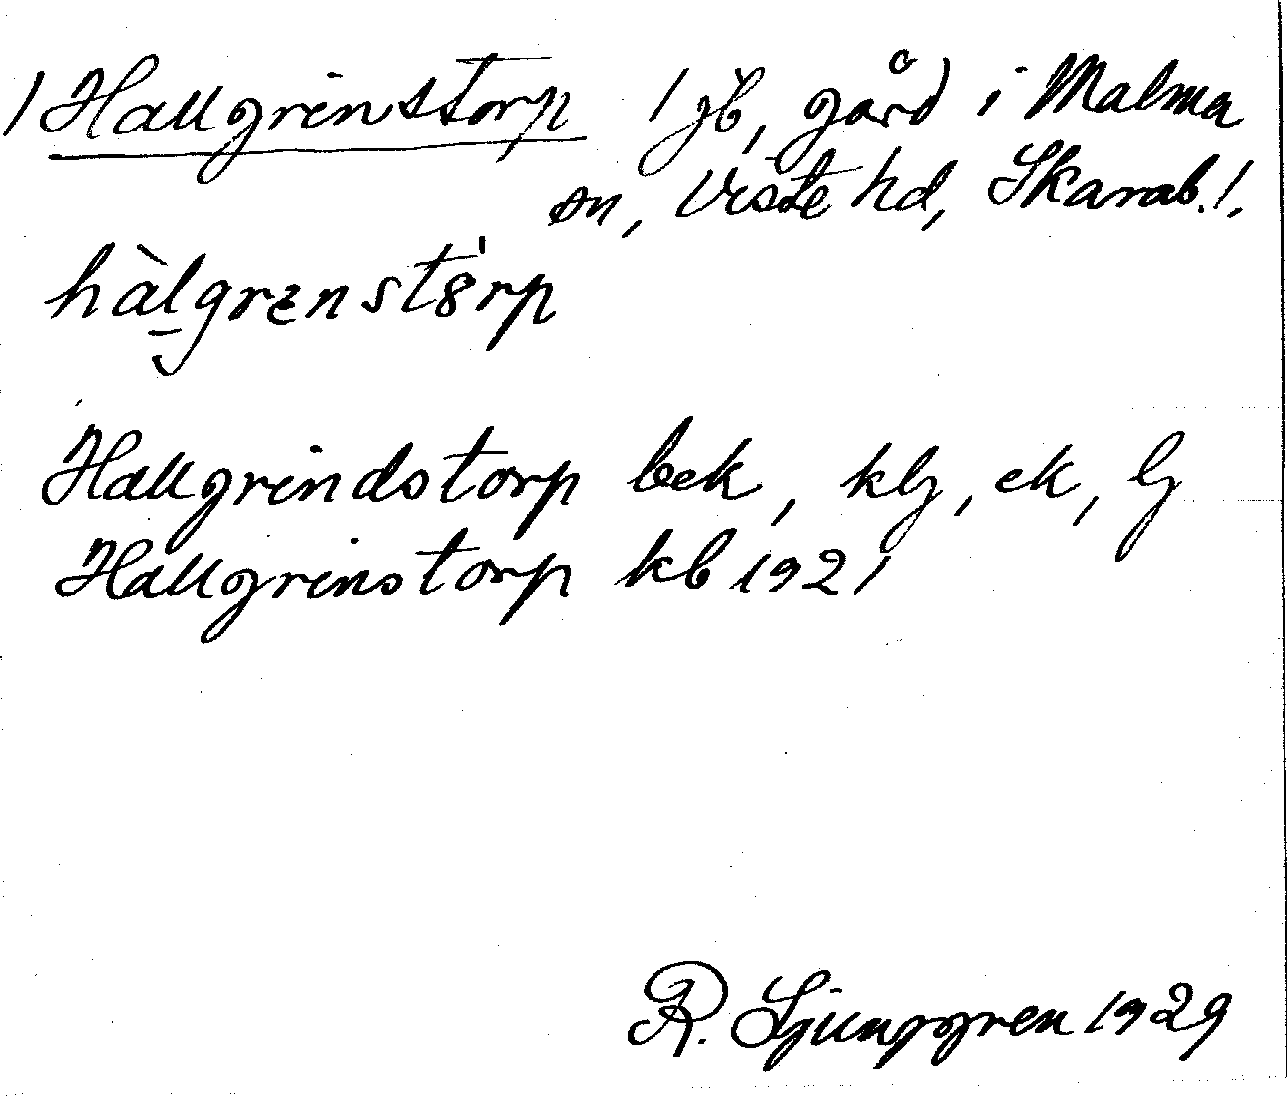 / Hallgrinstorp / jb, gård i Malma
sn, Viste hd, Skarab. /.
hàlgrenstôrp
Hallgrindstorp bek, klj, ek, lj
Hallgrinstorp kb 1921
R. Ljunggren 1929